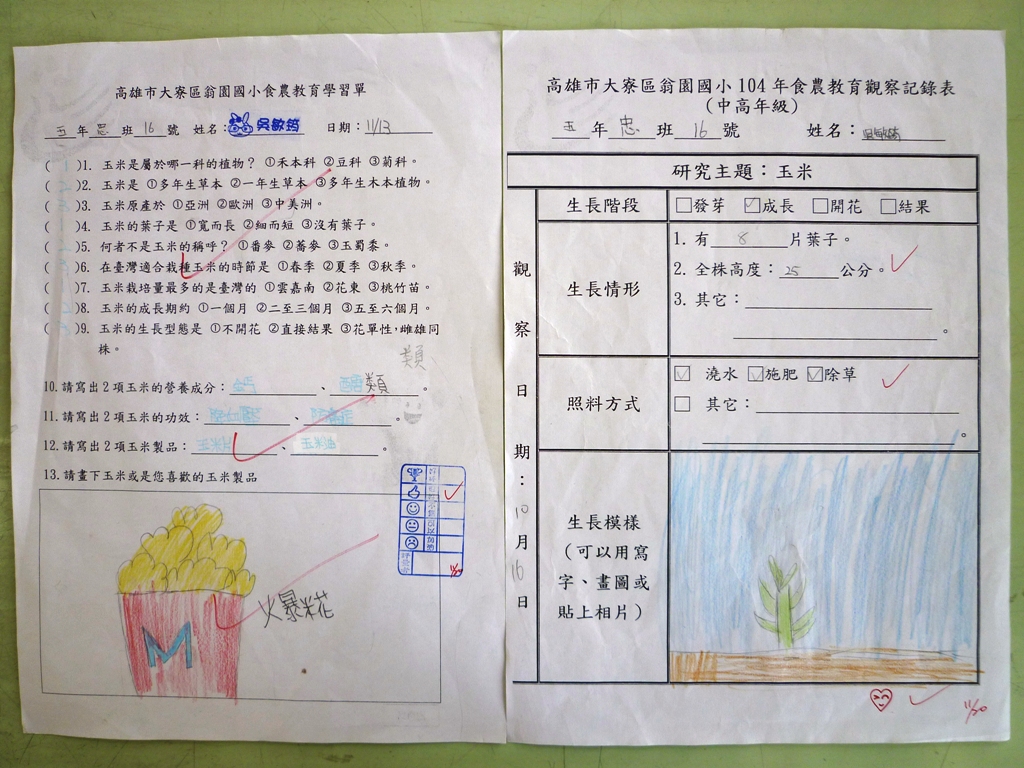 高雄市大寮區翁園國小食農教育學習單
五年忠班16號 姓名:吳敏錡 日期:11/13
( 1 )1. 玉米是屬於哪一科的植物? ①禾本科 ②豆科 ③菊科。
( 2 )2. 玉米是 ①多年生草本 ②一年生草本 ③多年生木本植物。
( 3 )3. 玉米原產於 ①亞洲 ②歐洲 ③中美洲。
( 1 )4. 玉米的葉子是 ①寬而長 ②細而短 ③沒有葉子。
( )5. 何者不是玉米的稱呼? ①番麥 ②蕎麥 ③玉蜀黍。
( 3 )6. 在臺灣適合栽種玉米的時節是 ①春季 ②夏季 ③秋季。
( )7. 玉米栽培量最多的是臺灣的 ①雲嘉南 ②花東 ③桃竹苗。
( 2 )8. 玉米的成長期約 ①一個月 ②二至三個月 ③五至六個月。
( 3 )9. 玉米的生長型態是 ①不開花 ②直接結果 ③花單性,雌雄同
株。
類
10.請寫出2項玉米的營養成分:鈣、醣類。
11.請寫出2項玉米的功效:、。
12.請寫出2項玉米製品:玉米片、玉米油。
13.請畫下玉米或是您喜歡的玉米製品
M
火暴米花
11/20
高雄市大寮區翁園國小104年食農教育觀察記錄表
(中高年級)
五年忠班16號 姓名:吳敏錡
研究主題:玉米
觀察日期:10月16日
生長階段 □發芽 ☑成長 □開花 □結果
生長情形
1. 有8片葉子。
2. 全株高度:25公分。
3. 其它:
。
照料方式
☑ 澆水 ☑施肥 ☑除草
□ 其它:
。
生長模樣
(可以用寫
字、畫圖或
貼上相片)
11/20